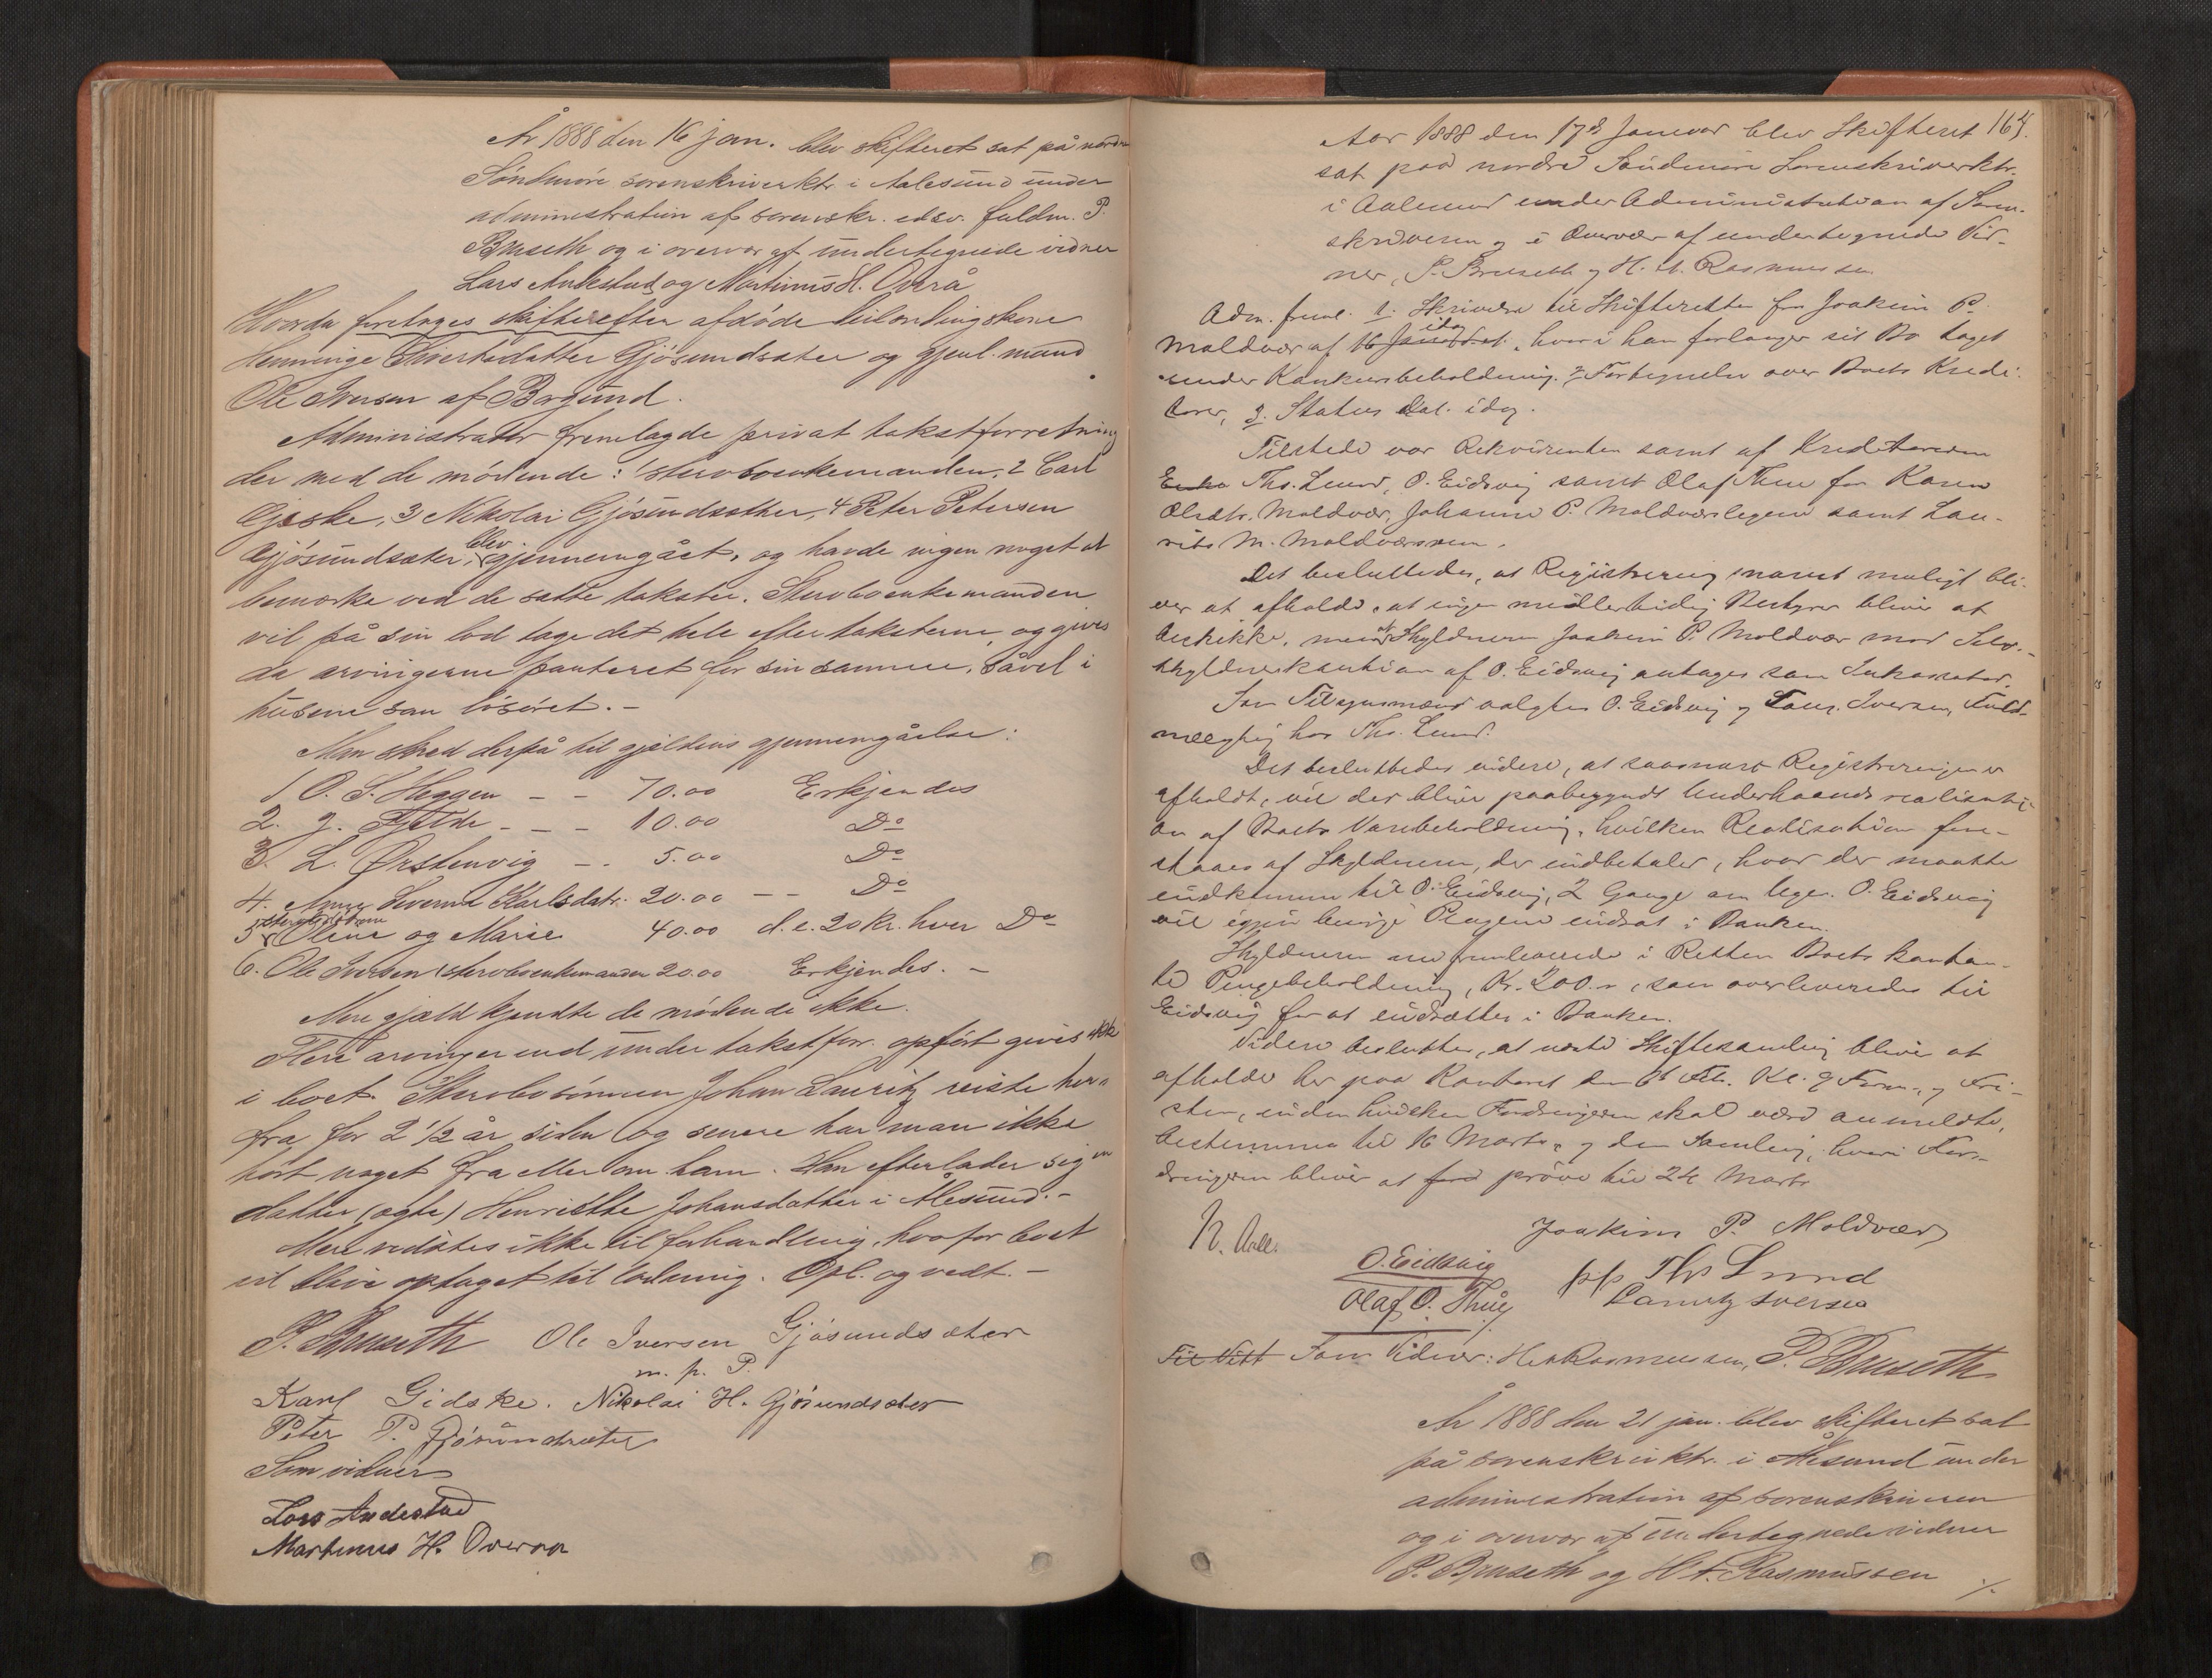 År 1888 den 16 jan. blev skifteret sat på nordre
Söndmöre sorenskriverktr. i Aalesund under
administration af sorenskr. edsv. fuldm. P.
Bruseth og i overvær af undertegnede vidner
Lars Andestad og Martinus H. Överå
Hvorda foretages skifte efter afdöde
Henninge Sivertsdatter Gjösundsæter og gjenl. mand
Ole Iversen af Borgund.
Administrator fremlagde privat takstforretning
der med de mödende: 1 stervboenkemanden, 2 Carl
Gjeske, 3 Nikolai Gjösundsæther, 4 Peter Petersen
Gjösundsæter, blev gjennemgået, og havde ingen noget at
bemærke ved de satte takster. Stervboenkemanden
vil på sin lod tage det hele efter taksterne, og gives
da arvingerne panteret for sin summe, såvel i
husene som lösöret. –
Man skred derpå til gjældens gjennemgåelse:
1 O. S. Heggen – – 70.00 Erkjendes
2. J. Fjelde – – – 10.00 Do
3. L. Ørstenvig – – 5.00 Do
4. Anne Severine Karlsdatr. 20.00 – – Do
5 Oline og Marie 40.00 d. e. 20 kr. hver Do
6. Ole Iversen (stervboenkemanden 20.00 Erkjendes. –
Mere gjæld kjendte de mödende ikke.
Flere arvinger end under takstforr. opfört gives ikke
i boet. Stervbosönnen Johan Lauritz reiste her-
fra for 2 1/2 år siden og senere har man ikke
hört noget fra eller om ham. Han efterlader sig en
datter (ægte) Henriette Johansdatter i Ålesund. –
Mere vedstes ikke til forhandling, hvorfor boet
vil blive optaget til lodning. Opl. og vedt. –
P. Bruseth Ole Iversen Gjösundsæter
m. p. P.
Karl Gidske. Nikolai H. Gjösundsæter
Peter P. Gjösundsæter
Som vidner
Lars Andestad
Martinus H. Overaa
164.
Aar 1888 den 17de Januar blev Skifteret
sat paa nordre Søndmøre Sorenskriverktr.
i Aalesund under Administration af Soren-
skriveren og i Overvær af undertegnede Vid-
ner, P. Bruseth og H. A. Rasmussen
Adm. freml. 1. Skrivelse til Skifteretten fra Joakim P.
Moldvær af 16 Januar idag, hvori han forlanger sit Bo taget
under Konkursbehandling. 2 Fortegnelse over Boets Kredi-
torer, 3. Status dat. idag.
Tilstede var Rekvirenten samt af Kreditorerne
Ths. Lund, O. Eidsvig samt Olaf Thue for Karen
Olsdtr. Moldvær, Johanne P. Moldværslegene samt Lau-
rits M. Moldværsnæs.
Det besluttedes, at Registrering snarest muligt bli-
ver at afholde, at ingen midlertidig Bestyrer bliver at
beskikke, men at Skyldneren Joakim P. Moldvær mod Selv-
skyldnerkaution af O. Eidsvig antages som Inkassator.
Som Tilsynsmænd valgtes O. Eidsvig og Laur. Iversen, Fuld-
mægtig hos Ths. Lund.
Det besluttedes videre, at saasnart Registreringen er
afholdt, vil der blive paabegyndt Underhaandsrealisati-
on af Boets Varebeholdning, hvilken Realisation fore-
staaes af Skyldneren, der indbetaler, hvad der maatte
indkomme til O. Eidsvig, 2 Gange om Ugen. O. Eidsvig
vil igjen besørge Pengene indsat i Banken.
Skyldneren fremleverede i Retten Boets kontan-
te Pengebeholdning, Kr. 200.-, som overleveredes til
Eidsvig for at indsættes i Banken.
Videre besluttes, at næste Skiftesamling bliver at
afholde her paa Kontoret den 6te Feb. Kl. 9 Form., og Fri-
sten, inden hvilken Fordringerne skal være anmeldte,
bestemmes til 16 Marts, og den Samling, hvori For-
dringerne bliver at prøve til 24 Marts
N. Aall. Joakim P. Moldvær
O. Eidsvig p.p. Ths Lund
Olaf O. Thue Lauritz Iversen
Til Vitt Som Vidner: H A Rasmussen, P. Bruseth
År 1888 den 21 jan. blev skifteret sat
på sorenskriverktr. i Ålesund under
administration af sorenskriveren
og i overvær af undertegnede vidner
P. Bruseth og H A. Rasmussen ./.